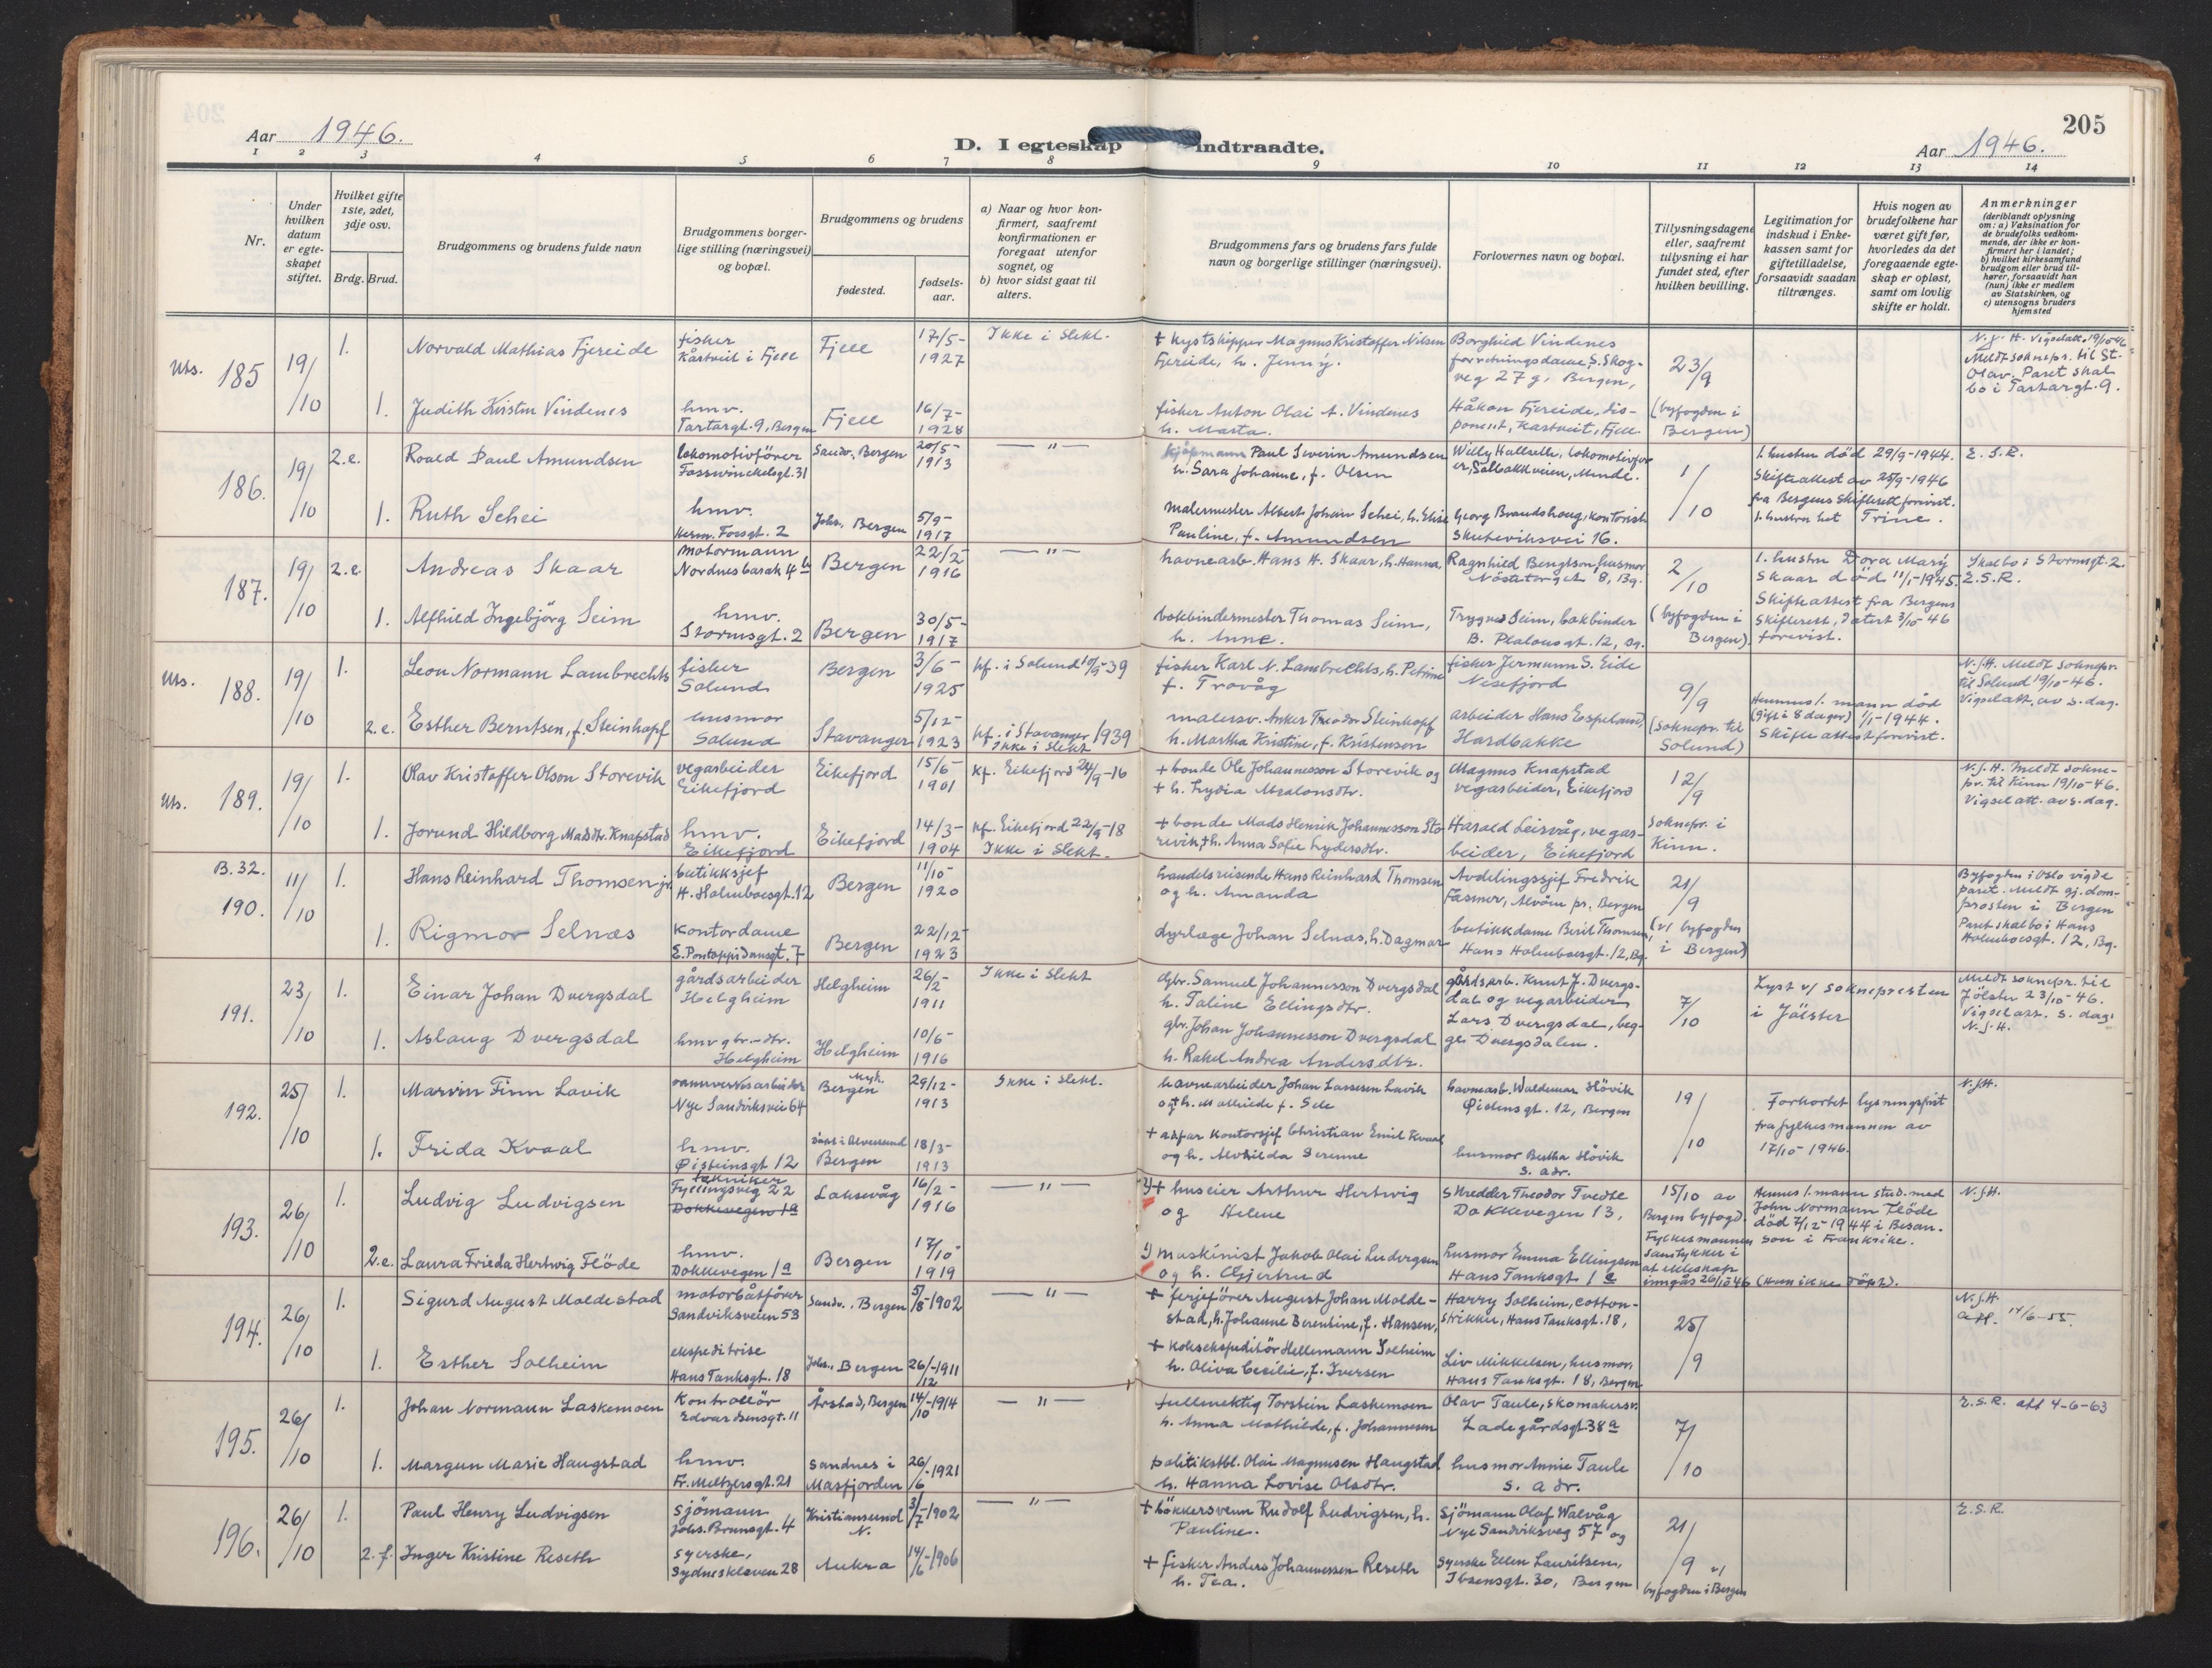 205
Aar 1946.
D. I egteskap indtraadte.
Aar 1946.
1 2 3 4 5 6 7 8 9 10 11 12 13 14
Nr.
Under hvilken datum er egteskapet stiftet.
Hvilket gifte 1ste, 2det, 3dje osv.
Brdg. Brud.
Brudgommens og brudens fulde navn
Brudgommens borgerlige stilling (næringsvei) og bopæl.
Brudgommens og brudens
fødested.
fødselsaar.
a) Naar og hvor konfirmert, saafremt konfirmationen er foregaat utenfor sognet, og
b) hvor sidst gaat til alters.
Brudgommens fars og brudens fars fulde navn og borgerlige stillinger (næringsvei).
Forlovernes navn og bopæl.
Tillysningsdagene eller, saafremt tillysning ei har fundet sted, efter hvilken bevilling.
Legitimation for indskud i Enkekassen samt for giftetilladelse, forsaavidt saadan tiltrænges.
Hvis nogen av brudefolkene har været gift før, hvorledes da det foregaaende egteskap er opløst, samt om lovlig skifte er holdt.
Anmerkninger (deriblandt oplysning om: a) Vaksination for de brudefolks vedkommende, der ikke er konfirmert her i landet; b) hvilket kirkesamfund brudgom eller brud tilhører, forsaavidt han (hun) ikke er medlem av Statskirken, og c) utensogns bruders hjemsted
Uts. 185 19/10 1. Norvald Mathias Fjereide fisher Kårtveit i Fjell Fjell 17/5-1927 Ikke i slekt.
+ kystskipper Magnus Kristoffer Nilsen Fjereide, h. Jenny.
Borghild Vindenes forretningsdame, S. Skogveg 27 g, Bergen,
23/9 (byfogden i Bergen)
N.J.H. Vigselatt. 19/10-46 Meldt soknepr. til St. Olav. Paret skal bo i Tartargt. 9.
1. Judith Kristin Vindenes hmv. Tartargt. 9, Bergen Fjell 16/7-1928
fisker Anton Olai A. Vindenes h. Marta.
Håkon Fjereide, disponent, Kartveit, Fjell
186. 19/10 2.e. Roald Paul Amundsen lokomotivfører Fosswinckelsgt. 31 Sandv., Bergen 20/5-1913 — " —
kjøpmann Paul Severin Amundsen h. Sara Johanne, f. Olsen
Willy Hallrelle, lokomotivfører, Solbakkveien, Minde.
1/10
1. hustru død 29/9-1944. Skifteattest av 25/9-1946 fra Bergens skifterett forevist. 1. hustru het Trine.
E.S.R.
1. Ruth Schei hmv. Herm. Fossgt. 2 Johs., Bergen 5/9-1917
malermester Albert Johan Schei, h. Elise Pauline, f. Amundsen
Georg Brandshaug, kontorist Skuteviksvei 16.
187. 19/10 2.e. Andreas Skaar motormann Nordnesbarak 4 b Bergen 22/2-1916 — " —
havnearb. Hans H. Skaar, h. Hanna
Ragnhild Bengtson, husmor Nöstetorget 8, Bg.
2/10 (byfogden i Bergen)
1. hustru Dora Mary Skaar død 11/1-1945. Skifteattest fra Bergens skifterett, datert 3/10-46 forevist.
Skal bo i Stormsgt. 2. E.S.R.
1. Alfhild Ingebjörg Seim hmv. Stormsgt. 2 Bergen 30/5-1917
bokbindermester Thomas Seim, h. Anne.
Trygve Seim, bokbinder B. Plolausgt. 12, Bg.
Uts. 188. 19/10 1. Leon Normann Lambrechts fisker Solund Bergen 3/6-1925 kf. i Solund 10/9-39
fisker Karl N. Lambrechts, h. Petrine f. Trovåg
fisker Jermann S. Eide Nesefjord
9/9 (soknepr. til Solund)
Hennes 1. mann død (gift i 8 dager) 1/1-1944. Skifteattest forevist.
N.J.H. Meldt soknepr. til Solund 19/10-46. Vigselatt. av s. dag.
2.e. Esther Berntsen, f. Steinkopf husmor Solund Stavanger 5/12-1923 kf. i Stavanger 1939 Ikke i slekt
malersv. Anker Theodor Steinkopf h. Martha Kristine, f. Kristenson
arbeider Hans Espeland, Hardbakke
Uts. 189. 19/10 1. Olav Kristoffer Olson Storevik vegarbeider Eikefjord Eikefjord 15/6-1901 kf. Eikefjord 24/9-16
+ bonde Ole Johannesson Storevik og + h. Lydia Absalonsdtr.
Magnus Knapstad vegarbeider, Eikefjord
12/9 Soknepr. i Kinn.
N.J.H. Meldt soknepr. til Kinn 19/10-46. Vigselatt. av s. dag.
1. Jorund Hildborg Madsdtr. Knapstad hmv. Eikefjord Eikefjord 14/3-1904 kf. Eikefjord 22/9-18 Ikke i slekt.
+ bonde Mads Henrik Johannesson Storevik, + h. Anna Sofie Lydersdtr.
Harald Leirvåg, vegarbeider, Eikefjord
B.32. 190. 11/10 1. Hans Reinhard Thomsen jr. butikksjef H. Holmboesgt. 12 Bergen 11/10-1920
handelsreisende Hans Reinhard Thomsen og h. Amanda
Avdelingssjef Fredrik Fasmer, Alvöen pr. Bergen
21/9 (v/ byfogden i Bergen)
Byfogden i Oslo vigde paret. Meldt gj. domprosten i Bergen Paret skal bo i Hans Holmboesgt. 12, Bg.
1. Rigmor Selnæs kontordame E. Pontoppidansgt. 7 Bergen 22/12-1923
dyrlæge Johan Selnæs, h. Dagmar
butikkdame Berit Thomsen, Hans Holmboesgt. 12, Bg.
191. 23/10 1. Einar Johan Dvergsdal gårdsarbeider Helgheim Helgheim 26/2-1911 Ikke i slekt
gbr. Samuel Johannesson Dvergsdal h. Taline Ellingsdtr.
gårdsarb. Knut J. Dvergsdal og vegarbeider Lars Dvergsdal, begge Dvergsdalen.
7/10
Lyst v/ soknepresten i Jölster
Meldt soknepr. til Jölster 23/10-46. Vigselatt. s. dag. N.J.H.
1. Aslaug Dvergsdal hmv gbr.-dtr. Helgheim Helgheim 10/6-1916
gbr. Johan Johannesson Dvergsdal h. Rakel Andrea Andersdtr.
192. 25/10 1. Marvin Finn Lavik Nye Sandviksvei 64 Nyk. Bergen 29/12-1913 Ikke i slekt.
havnearbeider Johan Lassesen Lavik og + h. Mathilde f. Sele
havnearb. Waldemar Hövik Øistensgt. 12, Bergen
19/10
Forkortet lysningsfrist fra fylkesmannen av 17/10-1946.
N.J.H.
1. Frida Kvaal hmv. Øisteinsgt 12 döpt i Alversund Bergen 18/3-1913
+ adfar kontorsjef Christian Emil Kvaal og h. Alvhilda Serenne
husmor Bertha Hövik s. adr.
193. 26/10 1. Ludvig Ludvigsen tekniker Fyllingsveg 22 Dokkevegen 1a Laksevåg 16/2-1916 — " —
2) + huseier Arthur Hertwig og Helene
Skredder Theodor Tvedte Dokkevegen 13,
15/10 av Bergen byfogd. Fylkesmannen samtykker i at ekteskap inngås 26/10-46
Hennes 1. mann stud. med John Normann Flöde död 7/12-1944 i Besanson i Frankrike. (Hun ikke döpt).
N.J.H.
2.e. Laura Frieda Hertwig Flöde hmv. Dokkevegen 1a Bergen 17/10-1919
1) maskinist Jakob Olai Ludvigsen og h. Gjertrud
husmor Emma Ellingsen Hans Tanksgt. 1 a
194. 26/10 1. Sigurd August Moldestad motorbåtförer Sandviksveien 53 Sandv., Bergen 5/8-1902 — " —
+ ferjeförer August Johan Moldestad, h. Johanne Berentine, f. Hansen,
Harry Solheim, cottonstrikker, Hans Tanksgt. 18,
25/9
N.J.H. att. 14/6-55.
1. Esther Solheim ekspeditrise Hans Tanksgt. 18 Johs., Bergen 26/12-1911
+ koksekspeditör Hellemann Solheim h. Oliva Cecilie, f. Iversen
Liv Mikkelsen, husmor, Hans Tanksgt. 18, Bergen
195. 26/10 1. Johan Normann Laskemoen Kontrollör Edvardsensgt. 11 Årstad, Bergen 14/10-1914 — " —
fullmektig Torstein Laskemoen h. Anna Mathilde, f. Johannesen
Olav Taule, skomakersv. Ladegårdsgt. 38 a
7/10
E.S.R. att 4-6-63
1. Margun Marie Haugstad hmv. Fr. Meltzersgt. 21 Sandnes i Masfjorden 26/6-1921
politikstbl. Olai Magnusen Haugstad h. Hanna Lovise Olsdtr.
husmor Annie Taule s. adr.
196. 26/10 1. Paul Henry Ludvigsen sjömann Johs. Brunsgt. 4 Kristiansund N. 3/7-1902 — " —
+ bökkersvenn Rudolf Ludvigsen, h. Pauline.
sjömann Olaf Walvåg Nye Sandviksveg 57 og
21/9 v/ byfogden i Bergen
E.S.R.
2.f. Inger Kristine Reseth syerske, Sydneskleven 28 Aukra 14/6-1906
+ fisker Anders Johannessen Reseth h. Tea.
syerske Ellen Lauritsen, Ibsensgt. 30, Bergen